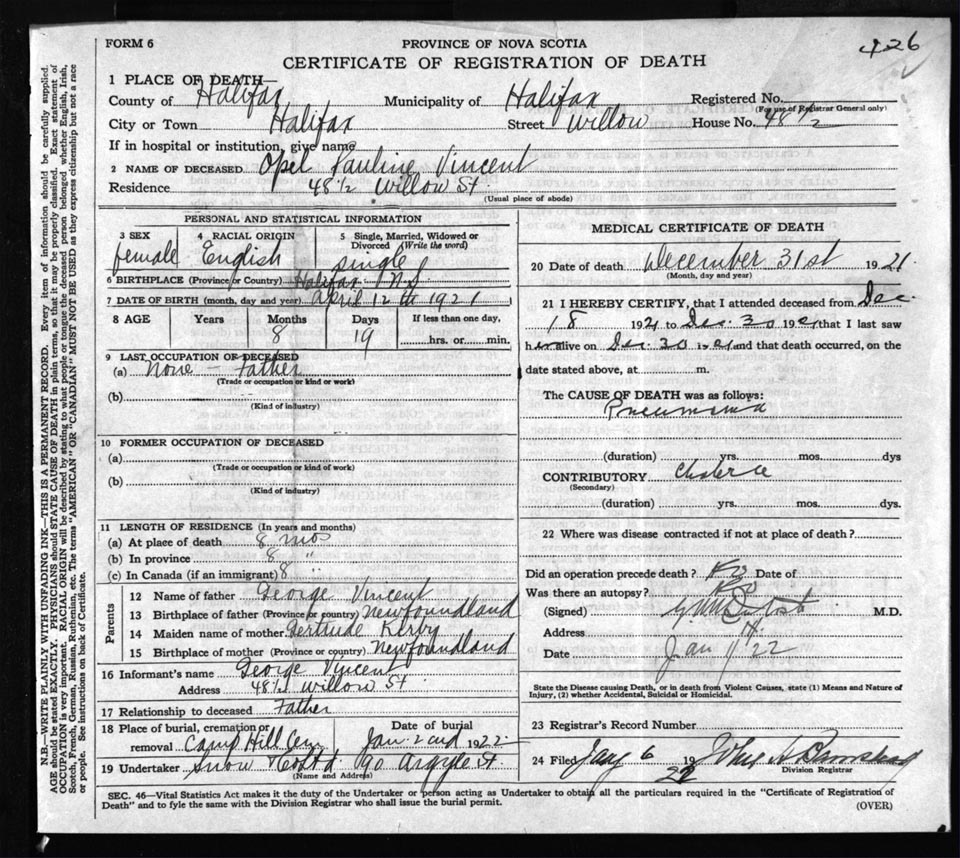 FORM 6
PROVINCE OF NOVA SCOTIA
426
CERTIFICATE OF REGISTRATION OF DEATH
1 PLACE OF DEATH—
County of Halifax Municipality of Halifax Registered No.
(For use of Registrar General only)
City or Town Halifax Street Willow House No. 48 1/2
If in hospital or institution, give name
2 NAME OF DECEASED Opel Pauline Vincent
Residence 48 1/2 Willow St.
(Usual place of abode)
PERSONAL AND STATISTICAL INFORMATION
3 SEX 4 RACIAL ORIGIN 5 Single, Married, Widowed or
Divorced (Write the word)
female English single
6 BIRTHPLACE (Province or Country) Halifax N.S
7 DATE OF BIRTH (month, day and year) April 12th 1921
8 AGE Years Months Days If less than one day,
8 19 hrs. or min.
9 LAST OCCUPATION OF DECEASED
(a) None - Father
(Trade or occupation or kind or work)
(b)
(Kind of industry)
10 FORMER OCCUPATION OF DECEASED
(a)
(Trade or occupation or kind of work)
(b)
(Kind of industry)
11 LENGTH OF RESIDENCE (In years and months)
(a) At place of death 8 mos
(b) In province 8 "
(c) In Canada (if an immigrant) 8 "
Parents
12 Name of father George Vincent
13 Birthplace of father (Province or country) Newfoundland
14 Maiden name of mother Gertrude Kerby
15 Birthplace of mother (Province or country) Newfoundland
16 Informant's name George Vincent
Address 48 1/2 Willow St
17 Relationship to deceased Father
18 Place of burial, cremation or Date of burial
removal Camp Hill Cem. Jan. 2nd 1922
19 Undertaker Snow & Co Ltd 90 Argyle St.
(Name and Address)
MEDICAL CERTIFICATE OF DEATH
20 Date of death December 31st 1921
(Month, day and year)
21 I HEREBY CERTIFY, that I attended deceased from Dec.
18 1921 to Dec. 30 1921 that I last saw
her alive on Dec. 30 1921 and that death occurred, on the
date stated above, at m.
The CAUSE OF DEATH was as follows:
Pneumonia
(duration) yrs. mos. dys
CONTRIBUTORY
(Secondary)
(duration) yrs. mos. dys.
22 Where was disease contracted if not at place of death?
Did an operation precede death? No Date of
Was there an autopsy? No
(Signed) M.D.
Address
Date Jan 22
State the Disease causing Death, or in death from Violent Causes, state (1) Means and Nature of
Injury, (2) whether Accidental, Suicidal or Homicidal.
23 Registrar's Record Number
24 Filed Jany 6 19 22 John
Division Registrar
SEC. 46—Vital Statistics Act makes it the duty of the Undertaker or person acting as Undertaker to obtain all the particulars required in the "Certificate of Registration of
Death" and to fyle the same with the Division Registrar who shall issue the burial permit.
(OVER)
N.B.—WRITE PLAINLY WITH UNFADING INK—THIS IS A PERMANENT RECORD. Every item of information should be carefully supplied.
AGE should be stated EXACTLY. PHYSICIANS should STATE CAUSE OF DEATH in plain terms, so that it may be properly classified. Exact statement of
OCCUPATION is very important. RACIAL ORIGIN will be described by stating to what people or tongue the deceased person belonged whether English, Irish,
Scotch, French, German, Russian, Ruthenian, etc. The terms "AMERICAN" OR "CANADIAN" MUST NOT BE USED as they express citizenship but not a race
or people. See instructions on back of Certificate.